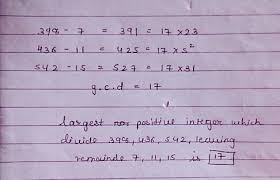 398 - 7 = 391 = 17 × 23
436 - 11 = 425 = 17 × 5²
542 - 15 = 527 = 17 × 31
g.c.d = 17
largest positive integer which
divide 398, 436, 542, leaving
remainde 7, 11, 15 is 17